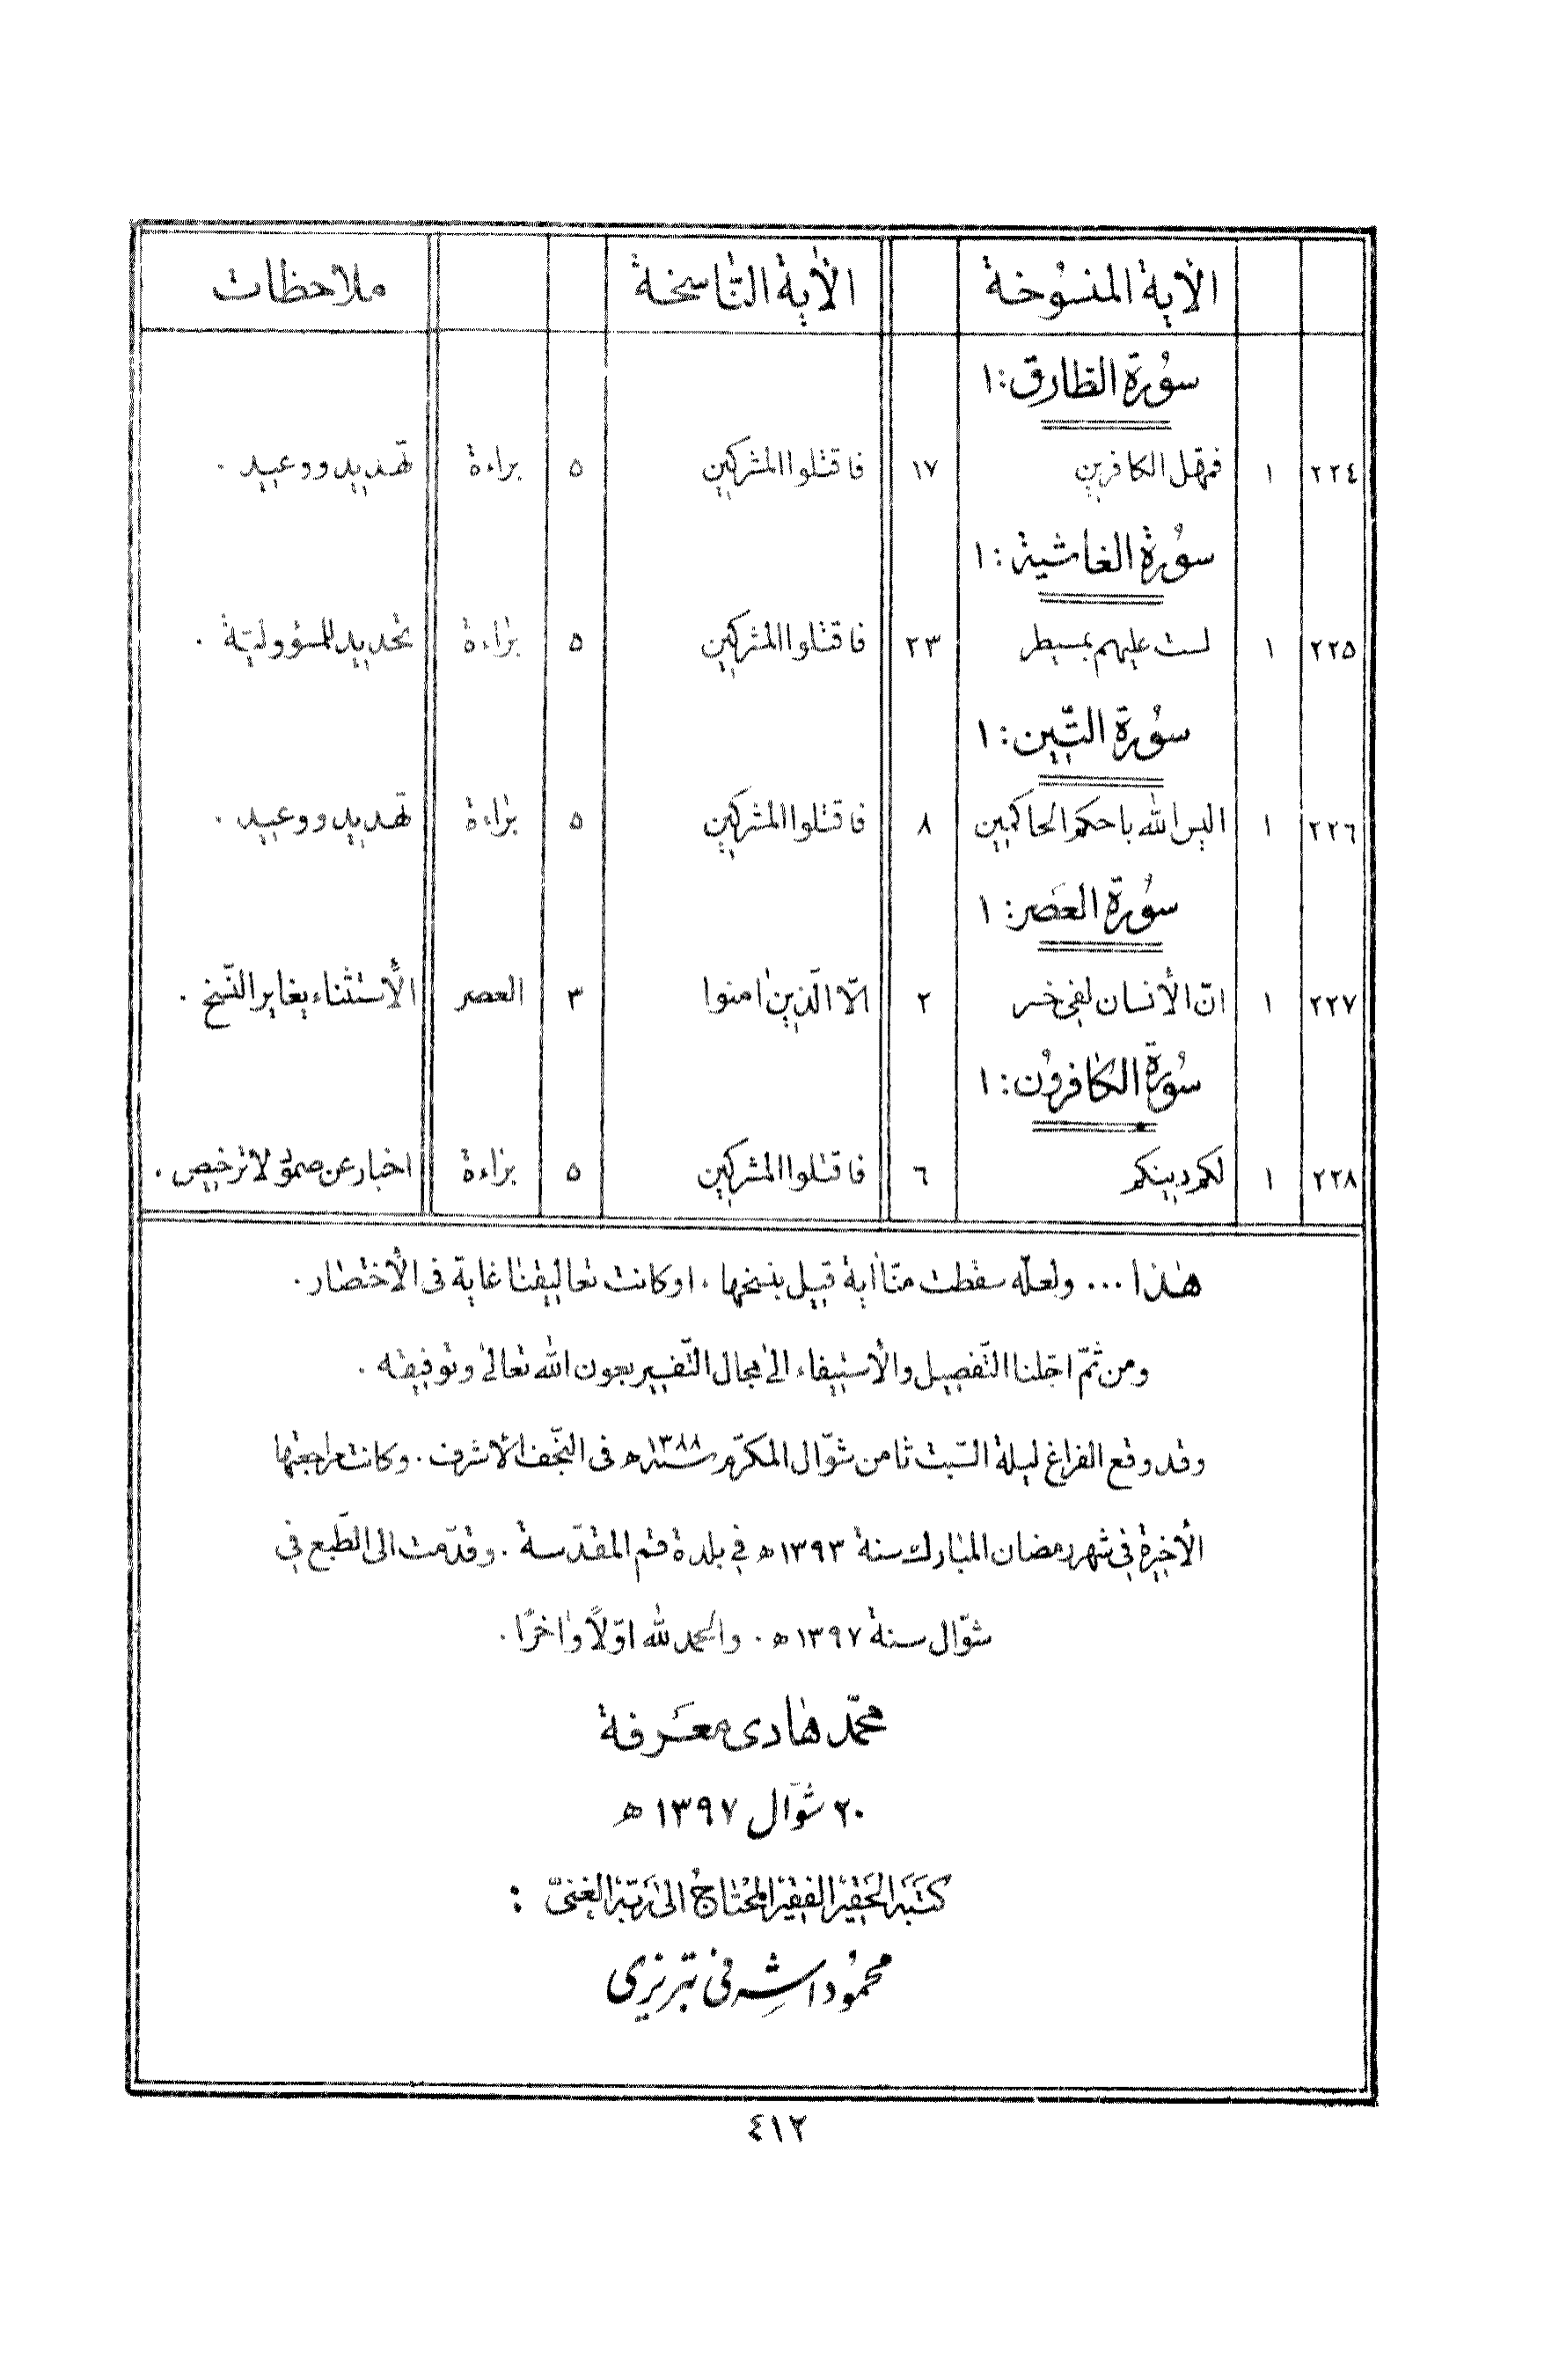 الآية المنسوخة الآية الناسخة ملاحظات
سورة الطارق: ١
٢٢٤ ١ فمهّل الكافرين ١٧ فاقتلوا المشركين ٥ براءة تهديد ووعيد.
سورة الغاشية: ١
٢٢٥ ١ لست عليهم بمسيطر ٢٣ فاقتلوا المشركين ٥ براءة تحديد للمسؤوليّة.
سورة التّين: ١
٢٢٦ ١ اليس الله باحكم الحاكمين ٨ فاقتلوا المشركين ٥ براءة تهديد ووعيد.
سورة العصر: ١
٢٢٧ ١ انّ الأنسان لفي خسر ٢ الّا الّذين اٰمنوا ٣ العصر الأستثناء يغاير النّسخ.
سورة الكافرون: ١
٢٢٨ ١ لكم دينكم ٦ فاقتلوا المشركين ٥ براءة اخبار عن لا ترخيص.
هٰذا ... ولعلّه سقطت منّا اٰية قيل بنسخها، او كانت تعاليقنا غاية فى الأختصار.
ومن ثمّ اجّلنا التّفصيل والأستيفاء الىٰ مجال التّفسير بعون الله تعالىٰ وتوفيقه.
وقد وقع الفراغ ليلة السّبت ثامن شوّال المكرّم سنة ١٣٨٨ه‍ فى النّجف الأشرف. وكانت مراجعتها
الأخيرة في شهر رمضان المبارك سنة ١٣٩٣ه‍ في بلدة قم المقدّسة. وقدّمت الى الطّبع في
شوّال سنة ١٣٩٧ه‍. والحمد لله اوّلاً واٰخرًا.
محمّد هٰادى معرفة
٢٠ شوّال ١٣٩٧ ه‍
كتبه الحقير الفقير المحتاج الىٰ ربّه الغنىّ:
محمود اشرفى تبريزى
٤١٢